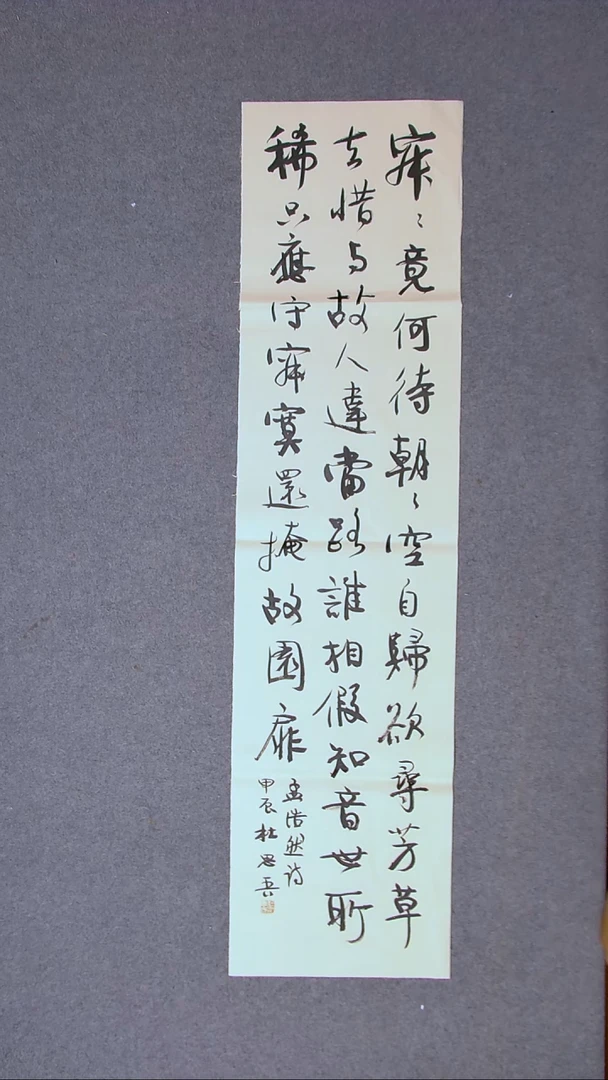 寂〻竟何待朝〻空自歸欲尋芳草
去惜与故人違當路誰相假知音世所
稀只應守寂寞還掩故園扉
孟浩然诗
甲辰杜思